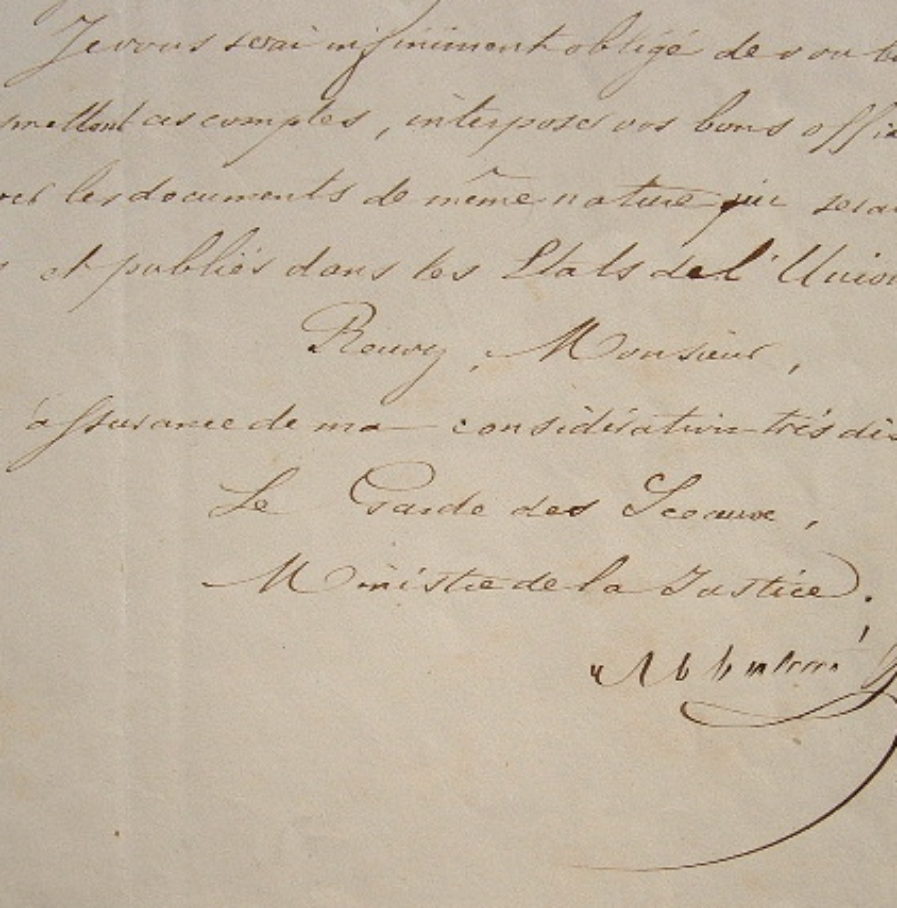 Je vous serai infiniment obligé de vou
smettant ces comptes, interposer vos bons offi
les documents de même nature qui serai
et publiés dans les Etats de l'Union
Recevez, Monsieur,
assurance de ma considération très dis
Le Garde des Sceaux,
Ministre de la Justice.